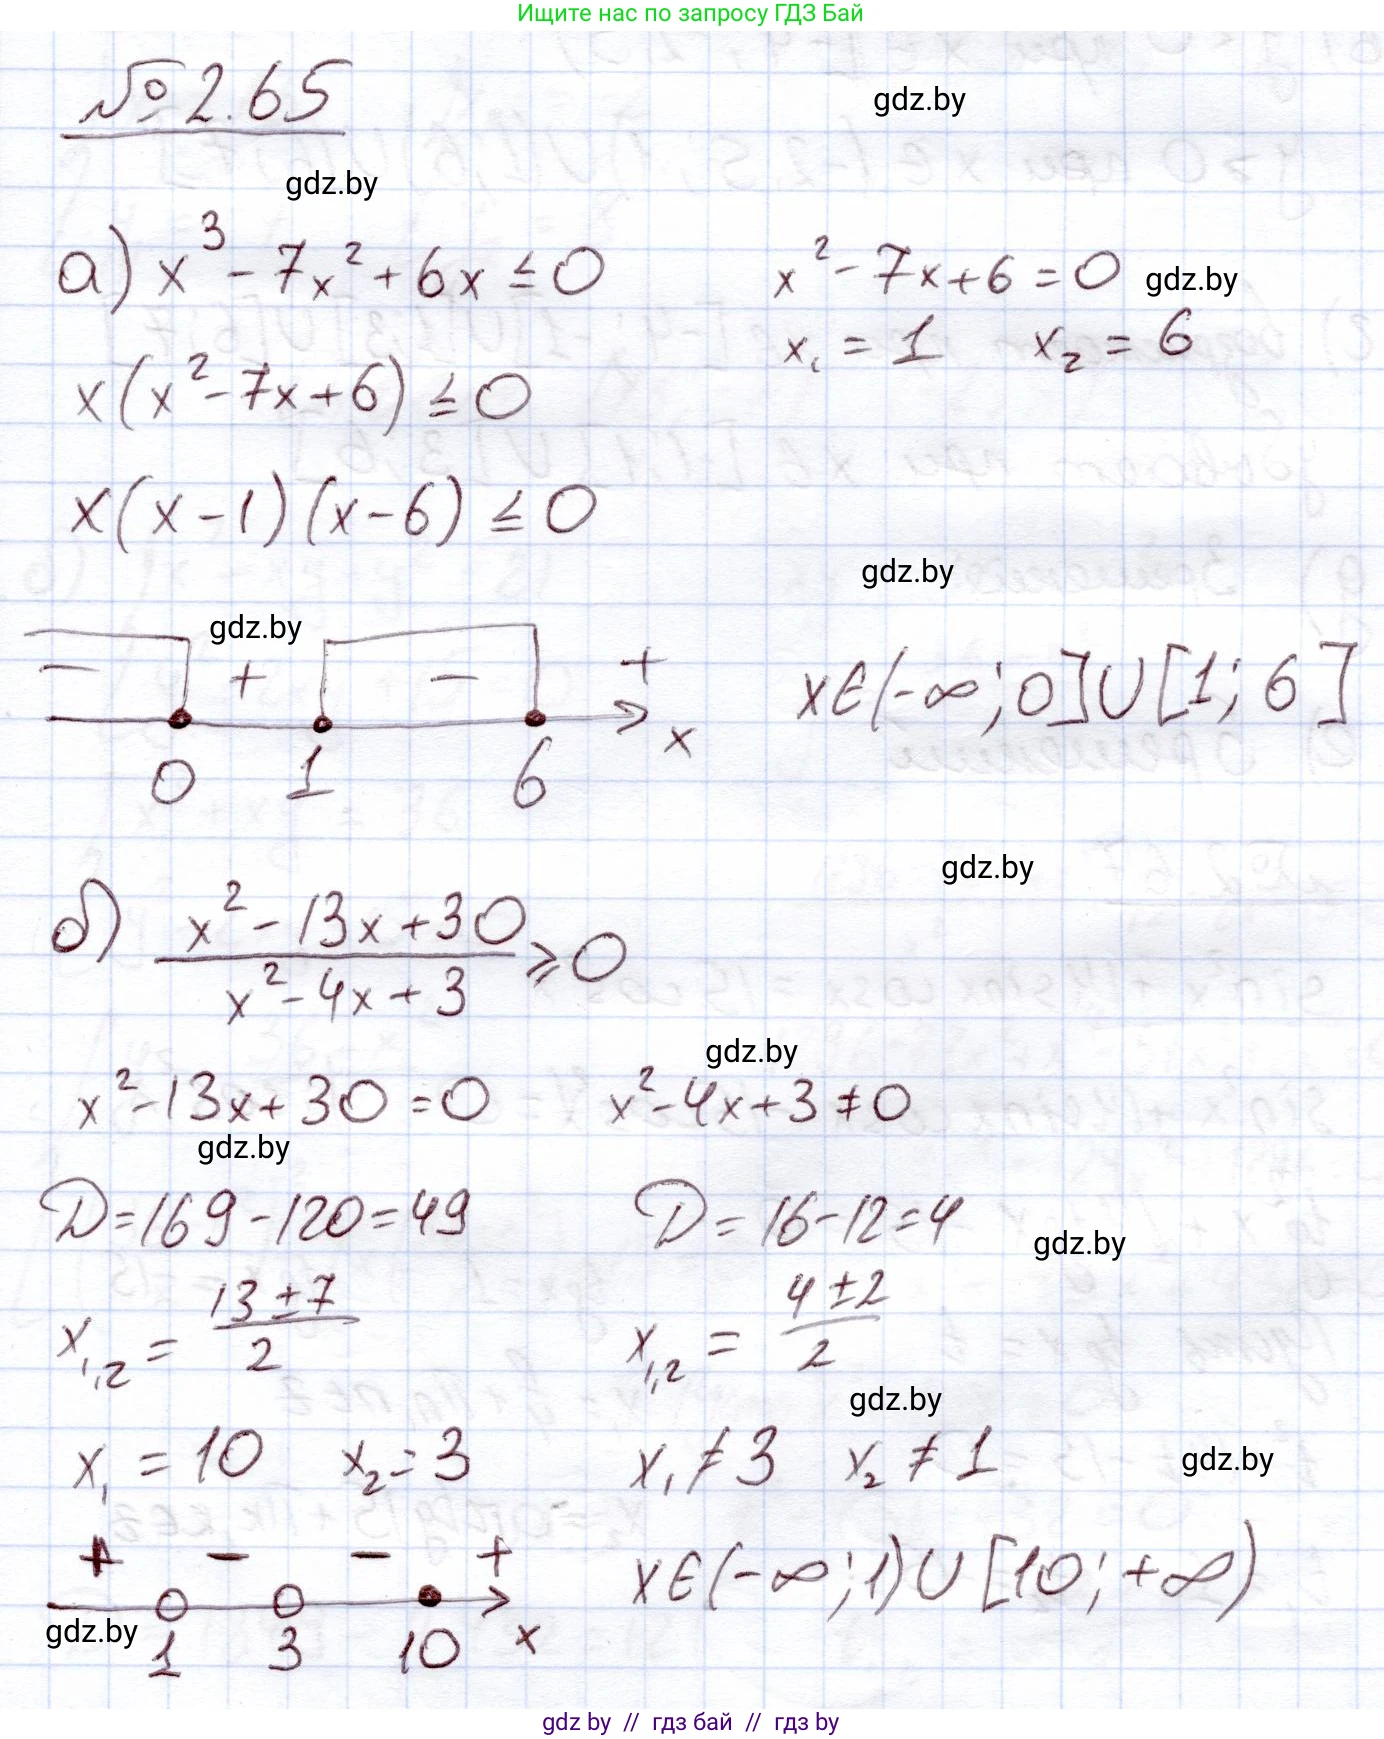 Ищите нас по запросу ГДЗ Бай
№ 2.65
gdz.by
gdz.by
а) x³ - 7x² + 6x ≤ 0
x² - 7x + 6 = 0
gdz.by
x₁ = 1 x₂ = 6
x(x² - 7x + 6) ≤ 0
x(x - 1)(x - 6) ≤ 0
gdz.by
gdz.by
− + − +
0 1 6 x
x∈(-∞; 0]∪[1; 6]
gdz.by
б) (x² - 13x + 30)/(x² - 4x + 3) ≥ 0
gdz.by
x² - 13x + 30 = 0 x² - 4x + 3 ≠ 0
gdz.by
D = 169 - 120 = 49 D = 16 - 12 = 4
gdz.by
x₁,₂ = (13 ± 7)/2 x₁,₂ = (4 ± 2)/2
gdz.by
x₁ = 10 x₂ = 3 x₁ ≠ 3 x₂ ≠ 1
gdz.by
+ − − +
1 3 10 x
x∈(-∞; 1)∪[10; +∞)
gdz.by
gdz by // гдз бай // гдз by